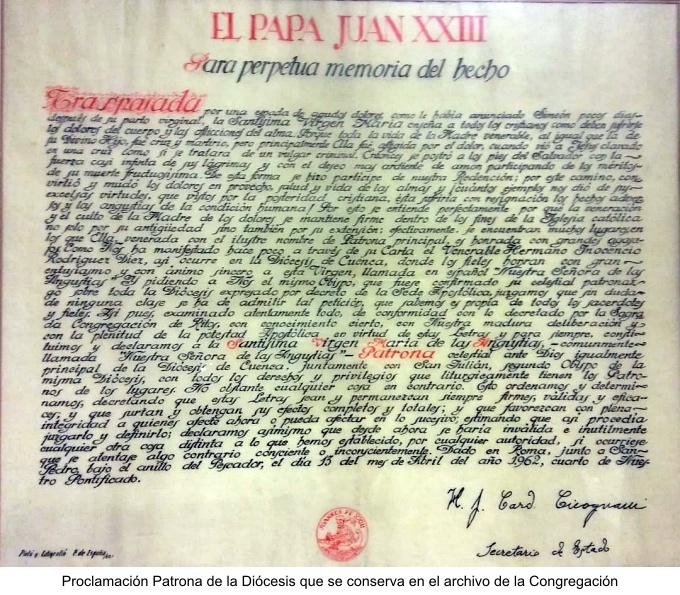 EL PAPA JUAN XXIII
Para perpetua memoria del hecho
Traspasada por una espada de agudos dolores, como le había anunciado Simeón pocos días
después de su parto virginal, la Santísima Virgen María enseña a todos los cristianos como deben sufrirse
los dolores del cuerpo y las aflicciones del alma. Porque toda la vida de la Madre venerable, al igual que la de
su Divino Hijo, fué cruz y martirio, pero principalmente Ella fué afligida por el dolor, cuando vió a Jesús clavado
en una cruz como si se tratara de un vulgar criminal. Entonces se postró a los pies del Salvador con la
fuerza casi infinita de sus lágrimas y con el deseo muy ardiente de amor participando de los méritos
de su muerte fructuosísima. De esta forma se hizo partícipe de nuestra Redención; por este camino, con-
virtió y mudó los dolores en provecho, salud y vida de las almas y ¡cuántos ejemplos nos dió de sus
excelsas virtudes, que vistos por la posteridad cristiana, ésta sufriría con resignación los hechos adver-
sos y las angustias de la condición humana! Por esto se entiende perfectamente por qué la veneración
y el culto de la Madre de los dolores se mantiene firme dentro de los fines de la Iglesia católica
no solo por su antigüedad sino también por su extensión; efectivamente, se encuentran muchos lugares, en
los que Ella, venerada con el ilustre nombre de Patrona principal, es honrada con grandes agasa-
jos. Como Nos ha manifestado hace poco a través de su Carta el Venerable Hermano Inocencio
Rodríguez Díez, así ocurre en la Diócesis de Cuenca, donde los fieles honran con gran
entusiasmo y con ánimo sincero a esta Virgen, llamada en español "Nuestra Señora de las
Angustias". Y pidiendo a Nos el mismo Obispo, que fuese confirmado su celestial patronaz-
go sobre toda la Diócesis expresado por decreto de la Sede Apostólica, juzgamos que sin duda
de ninguna clase se ha de admitir tal petición, que sabemos es propia de todos los sacerdotes
y fieles. Así pues, examinado atentamente todo, de conformidad con lo decretado por la Sagra-
da Congregación de Ritos, con conocimiento cierto, con Nuestra madura deliberación y
con la plenitud de la potestad Apostólica en virtud de estas Letras y para siempre, consti-
tuimos y declaramos a la Santísima Virgen María de las Angustias, -comunmente-
llamada "Nuestra Señora de las Angustias"- Patrona celestial ante Dios igualmente
principal de la Diócesis de Cuenca, juntamente con San Julián, segundo Obispo de la
misma Diócesis, con todos los derechos y privilegios que litúrgicamente tienen los Patro-
nos de los lugares. No obstante cualquier cosa en contrario. Esto ordenamos y determi-
namos, decretando que estas Letras sean y permanezcan siempre firmes, válidas y efica-
ces; y que surtan y obtengan sus efectos completos y totales; y que favorezcan con plena
integridad a quienes afecte ahora o pueda afectar en lo sucesivo; estimando que así procedía
juzgarlo y definirlo; declaramos asimismo que desde ahora se haría inválida e inutilmente
cualquier otra cosa distinta a lo que hemos establecido, por cualquier autoridad, si ocurriese
que se atentase algo contrario consciente o inconscientemente. Dado en Roma, junto a San
Pedro, bajo el anillo del Pescador, el día 13 del mes de Abril del año 1962, cuarto de Nues-
tro Pontificado.
H. J. Card Cicognani
Secretario de Estado
Proclamación Patrona de la Diócesis que se conserva en el archivo de la Congregación